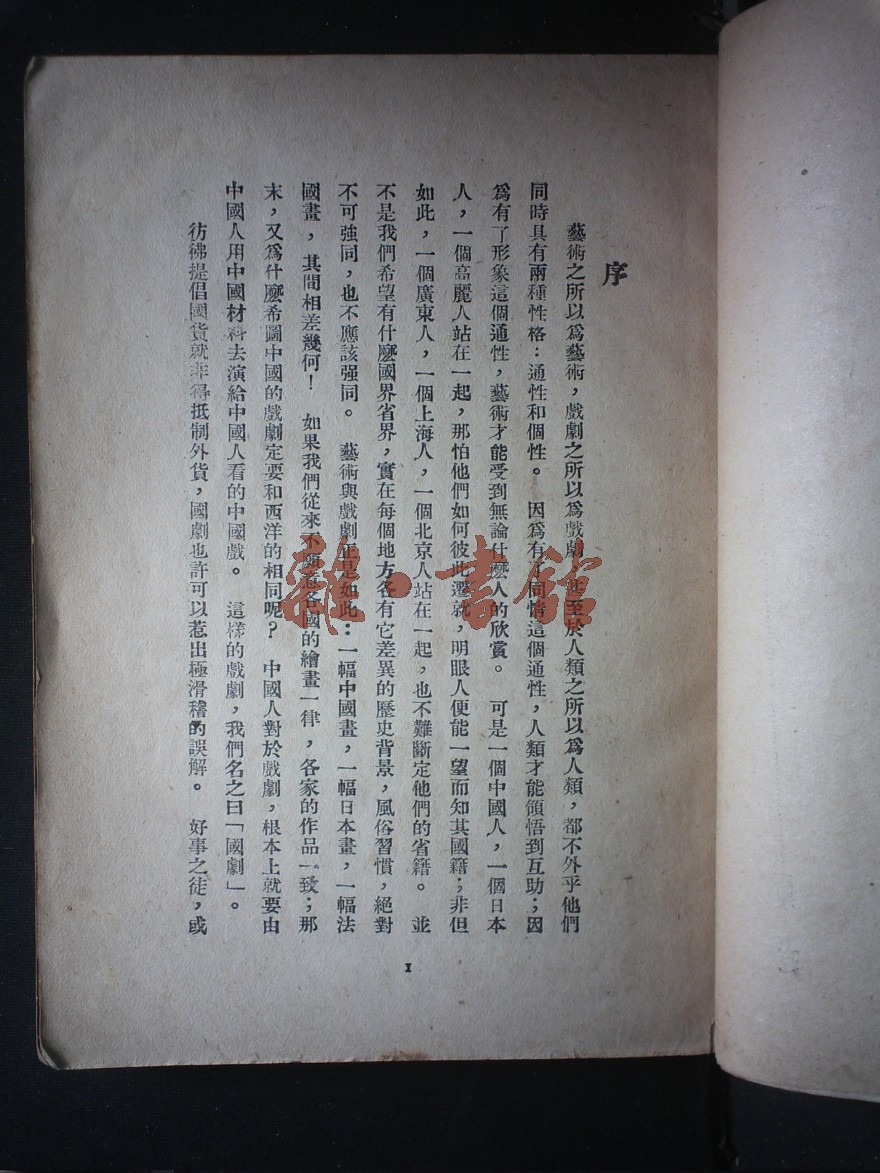 序
藝術之所以爲藝術，戲劇之所以爲戲劇，甚至於人類之所以爲人類，都不外乎他們
同時具有兩種性格：通性和個性。 因爲有了同情這個通性，人類才能領悟到互助；因
爲有了形象這個通性，藝術才能受到無論什麽人的欣賞。 可是一個中國人，一個日本
人，一個高麗人站在一起，那怕他們如何彼此遷就，明眼人便能一望而知其國籍；非但
如此，一個廣東人，一個上海人，一個北京人站在一起，也不難斷定他們的省籍。 並
不是我們希望有什麽國界省界，實在每個地方各有它差異的歷史背景，風俗習慣，絕對
不可強同，也不應該强同。 藝術與戲劇正是如此：一幅中國畫，一幅日本畫，一幅法
國畫，其間相差幾何！ 如果我們從來不願意各國的繪畫一律，各家的作品一致；那
末，又爲什麽希圖中國的戲劇定要和西洋的相同呢？ 中國人對於戲劇，根本上就要由
中國人用中國材料去演給中國人看的中國戲。 這樣的戲劇，我們名之曰「國劇」。
彷彿提倡國貨就非得抵制外貨，國劇也許可以惹出極滑稽的誤解。 好事之徒，或
1
雜·書館